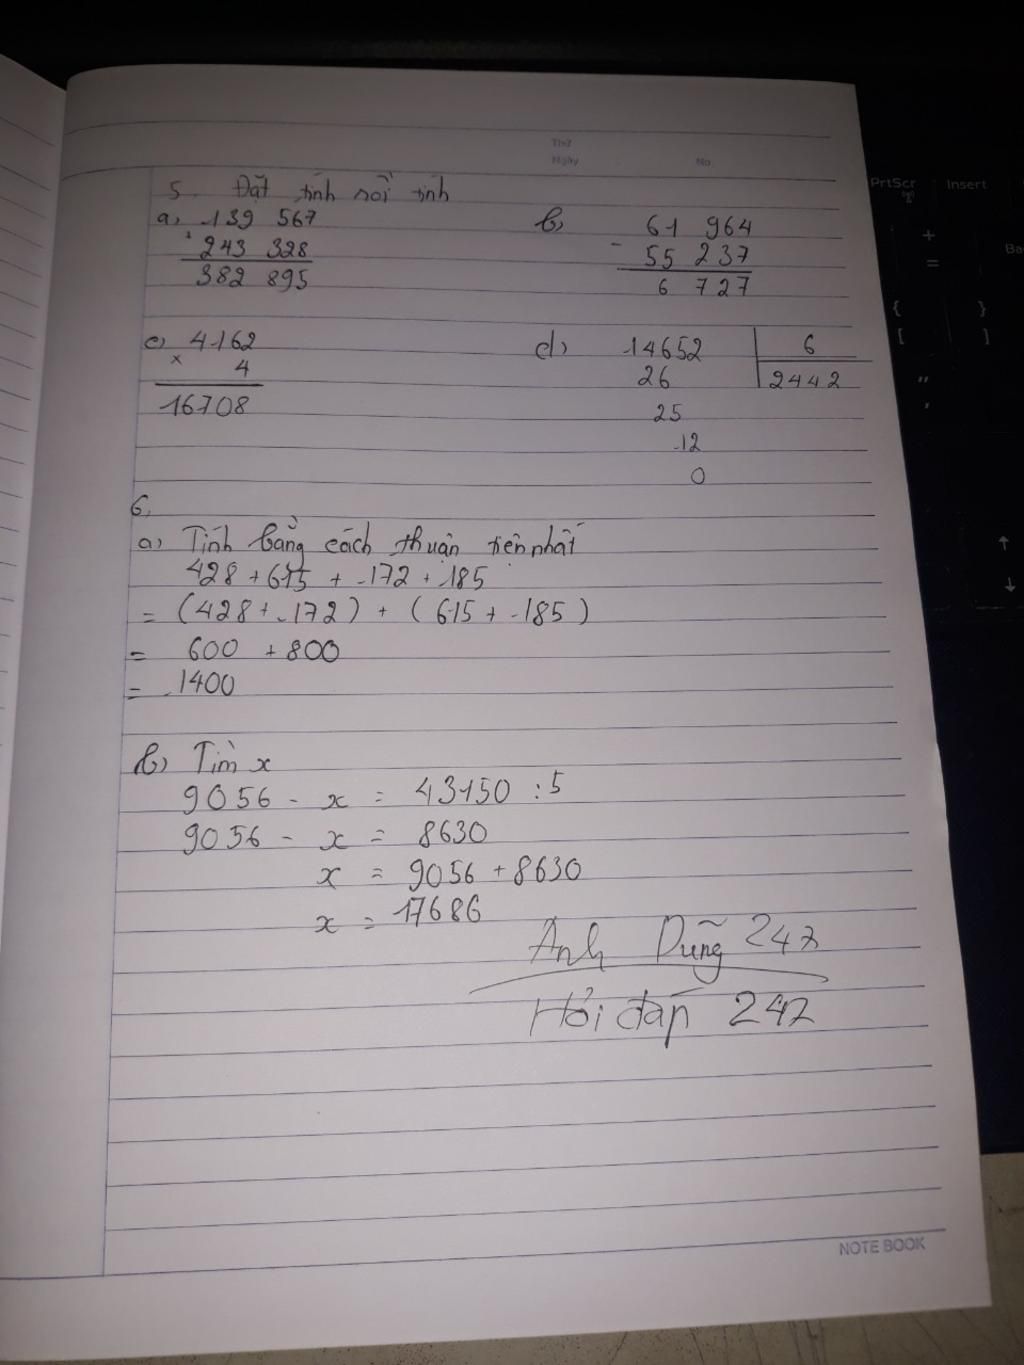 Thứ
Ngày No
5. Đặt tính rồi tính
a, 139 567 b, 61 964
+ 243 328 - 55 237
382 895 6 727
c, 4162 d, 14652 6
x 4 26 2442
16708 25
12
0
6,
a, Tính bằng cách thuận tiện nhất
428 + 615 + 172 + 185
= (428 + 172) + (615 + 185)
= 600 + 800
= 1400
b, Tìm x
9056 - x = 43150 : 5
9056 - x = 8630
x = 9056 + 8630
x = 17686
Anh Dũng 247
Hỏi đáp 247
NOTE BOOK
PrtScr Insert
+
=
{ }
[ ]
"
'
↑
↓